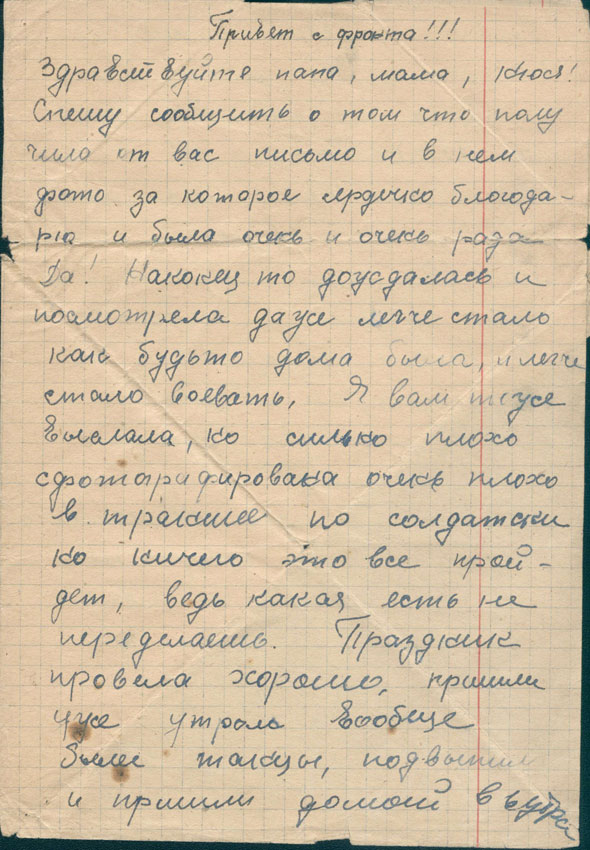 Привет с фронта!!!
Здравствуйте папа, мама, Нюся!
Спешу сообщить о том что полу
чила от вас письмо и в нем
фото за которое сердечно благода-
рю и была очень и очень рада
Да! Наконец то дождалась и
посмотрела даже легче стало
как будьто дома была, и легче
стало воевать, Я вам тоже
выслала, но сильно плохо
сфотографирована очень плохо
в траншее по солдатски
но ничего это все прой-
дет, ведь какая есть не
переделаешь. Праздник
провела хорошо, пришли
уже утром Вообще
были танцы, подвыпили
и пришли домой в